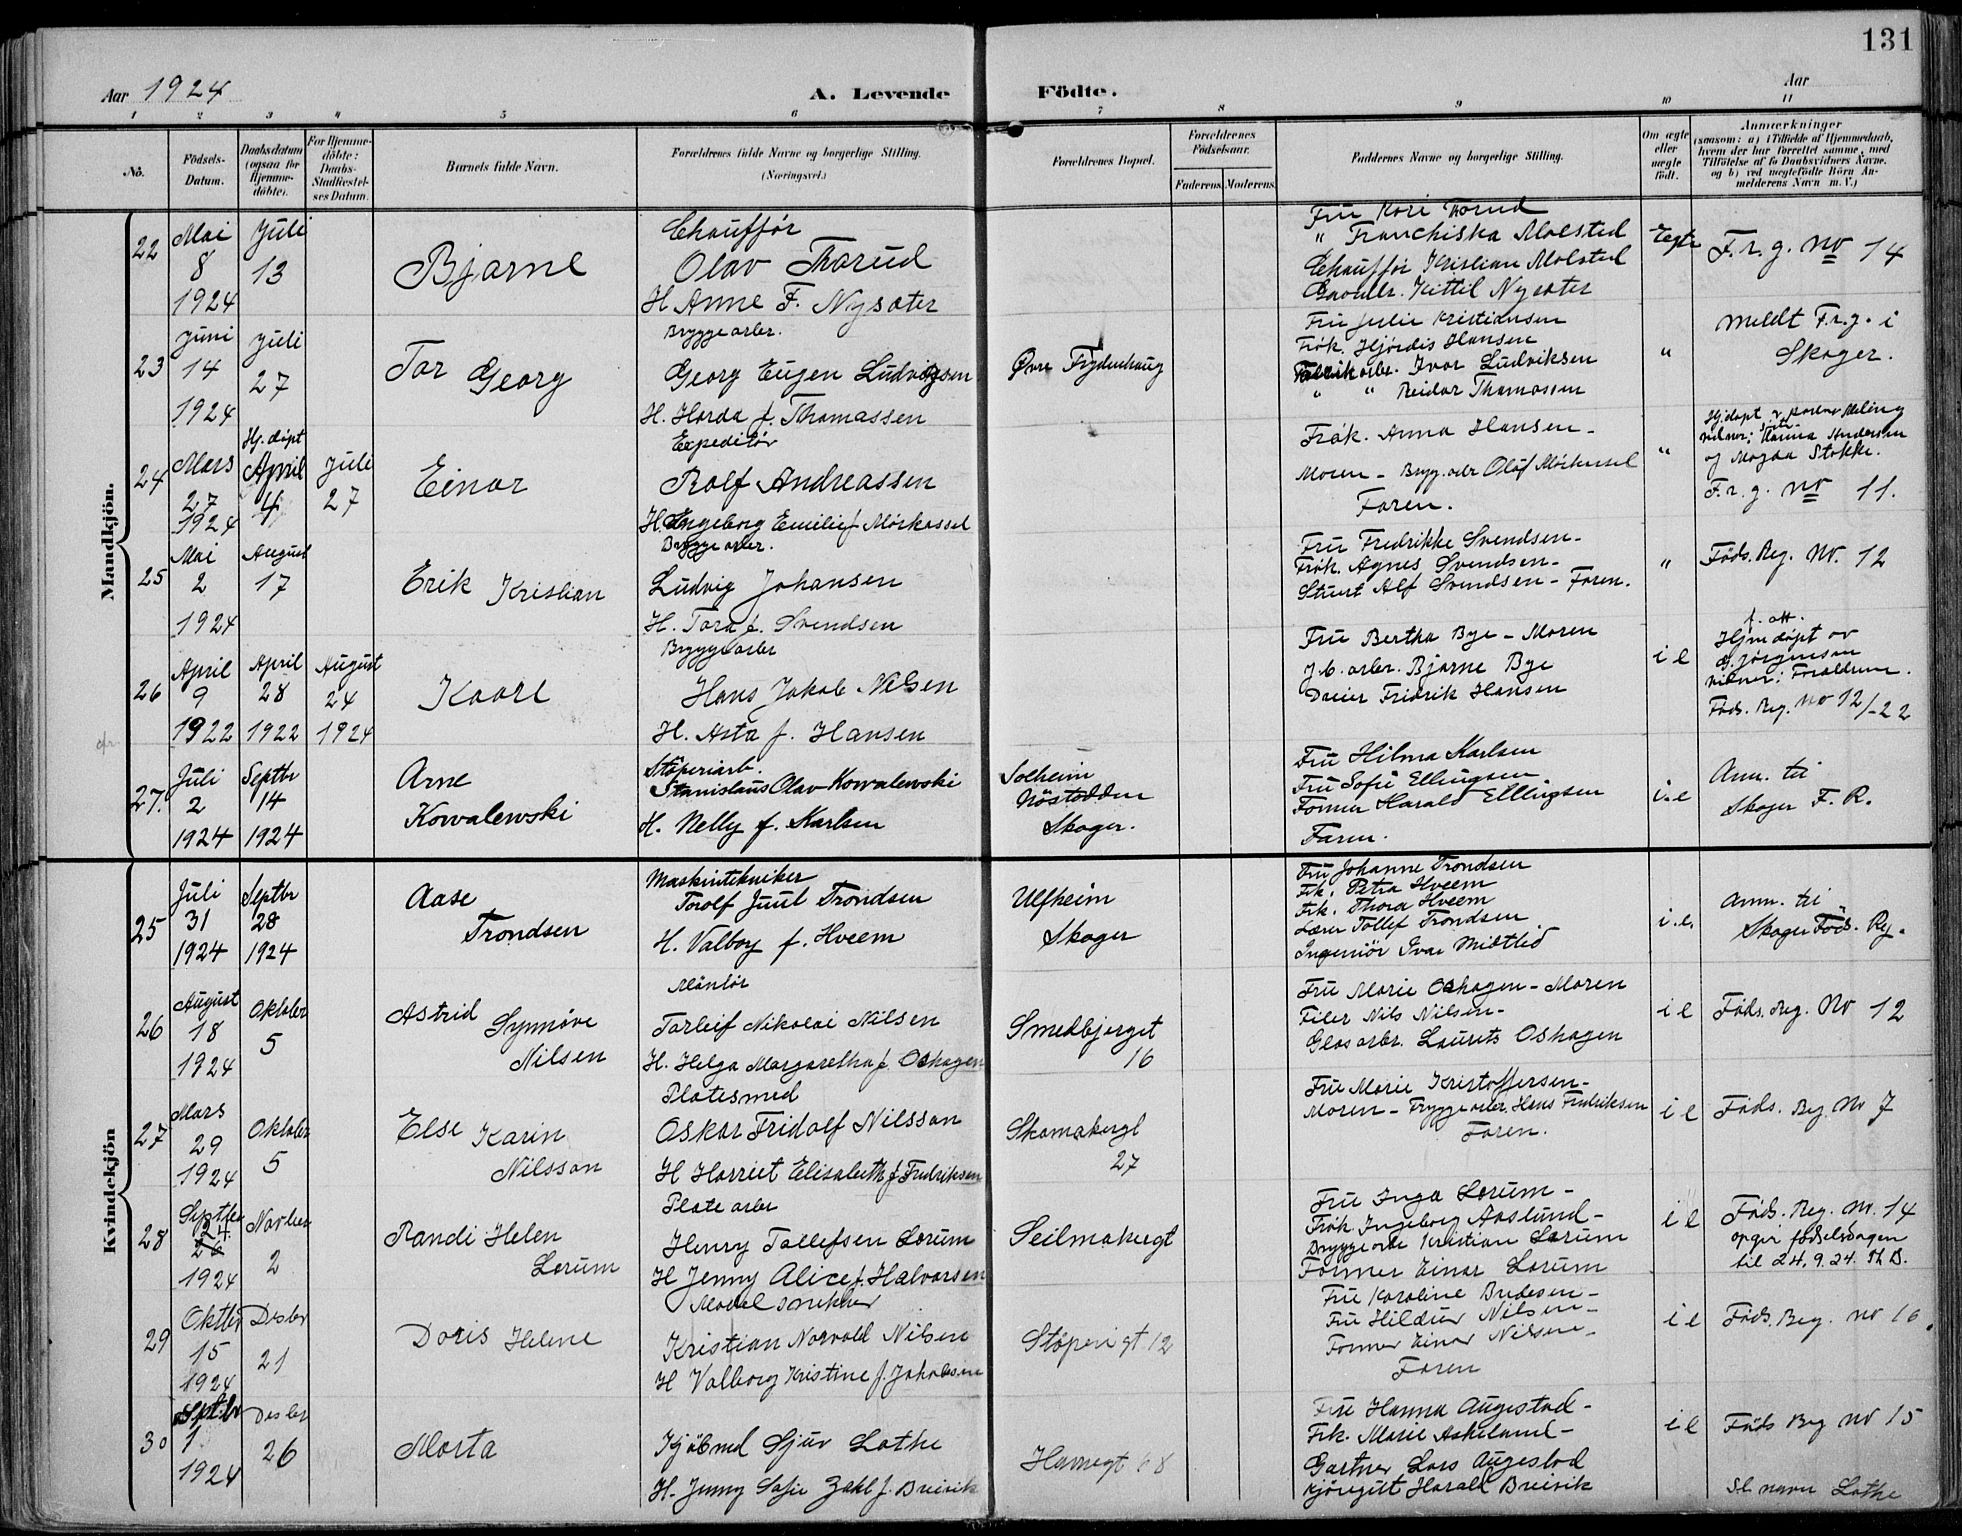 131
Aar 1924
A. Levende Födte.
Aar
1 2 3 4 5 6 7 8 9 10 11
No.
Födsels-Datum.
Daabsdatum (ogsaa for Hjemme-döbte).
For Hjemme-döbte: Daabs-Stadfæstel-ses Datum.
Barnets fulde Navn.
Forældrenes fulde Navne og borgerlige Stilling. (Næringsvei.)
Forældrenes Bopæl.
Forældrenes Födselsaar.
Faderens. Moderens.
Faddernes Navne og borgerlige Stilling.
Om ægte eller uægte födt.
Anmærkninger
(saasom: a) i Tilfælde af Hjemmedaab, hvem der har forrettet samme, med Tilföielse af to Daabsvidners Navne. og b) ved uægtefödte Börn An-melderens Navn m. V.)
Mandkjön.
22
Mai 8 1924
Juli 13
Bjarne
Chaufför
Olav Thorud
H Anne F. Nysæter
Fru Kari Thorud
" Franchiska Molstad
Chauffør Kristian Molstad
Kittil Nysæter
Ægte
F. r. g. No 14
23
Juni 14 1924
Juli 27
Tor Georg
Bryggearber.
Georg Eugen Ludvigsen
H. Harda f. Thomassen
Øvre Frydenhaug
Fru Julie Kristiansen
Frøk. Hjørdis Hansen
Fabrikarbr. Ivar Ludviksen
" " Reidar Thomassen
"
Meldt F. r. g. i
Skoger.
24
Mars 27 1924
Hj. døpt April 4
Juli 27
Einar
Expeditör
Rolf Andreassen
H. Ingeborg Emilie f. Mörkassel
Frøk. Anna Hansen -
Moren - Bryg. arbr Olaf Mörkassel
Faren.
"
Hj døpt
vidner: Hanna Andersen
og Magda Stokke.
F. r. g. No 11.
25
Mai 2 1924
August 17
Erik Kristian
Bryggearber.
Ludvig Johansen
H. Tora f. Svendsen
Fru Fredrikke Svendsen -
Frøk. Agnes Svendsen -
Stuert Alf Svendsen - Faren.
"
Föds. Reg. No. 12
26
April 9 1922
April 28 1922
August 24 1924
Kaare
Bryggearber
Hans Jakob Nilsen
H. Asta f. Hansen
Fru Bertha Bye - Moren
J. b. arber. Bjarne Bye
Fridrik Hansen
i e
f. att.
Hjmdøpt av
G. Jörgensen
vidner: Forældrene.
Föds. Reg. No 12/-22
27.
Juli 2 1924
Septbr 14 1924
Arne
Kowalewski
Stöperiarb.
Stanislaus Olav Kowalewski
H. Nelly f. Karlsen
Solheim
Nöstodden
Skoger.
Fru Hilma Karlsen
Fru Sofie Ellingsen
Former Harald Ellingsen
Faren.
i. e
Anm. til
Skoger F. R.
Kvindekjön
25
Juli 31 1924
Septbr 28 1924
Aase
Trondsen
Maskintekniker
Torolf Juul Trondsen
H. Valboy f. Hveem
Ulfheim
Skoger
Fru Johanne Trondsen
Frk. Petra Hveem
Frk. Thora Hveem
Lærer Tollef Trondsen
Ingeniör Ivar Midtlid
i. e.
Anm. til
Skoger Föds. Reg.
26
August 18 1924
Oktober 5
Astrid Synnøve
Nilsen
Montör
Torleif Nikolai Nilsen
H. Helga Margaretha f. Oshagen
Smedbjerget
16
Fru Marie Oshagen - Moren
Filer Nils Nilsen -
Glasarbr. Laurits Oshagen
i e
Föds. Reg. No 12
27
Mars 29 1924
Oktober 5
Else Karin
Nilsson
Platesmed
Oskar Fridolf Nilsson
H Harriet Elisabeth f. Fredriksen
Skomakergt
27
Fru Marie Kristoffersen -
Moren - Bryggearber. Hans Fredriksen
Faren.
i e
Föds. Reg No 7
28
Septber 24 1924
Novber 2
Randi Helen
Lerum
Platearber
Henry Tollefsen Lerum
H Jenny Alice f. Halvorsen
Seilmakergt
Fru Inga Lerum -
Frøk. Ingeborg Aaslund -
Bryggearb Kristian Lerum
Former Einar Lerum
i e
Föds. Reg. No. 14
opgir fødselsdagen
til 24. 9. 24.
29
Oktber 15 1924
Desbr 21
Doris Helene
Modelsnekker
Kristian Norvald Nilsen
H Valborg Kristine f. Jakobsen
Stöperigt 12
Fru Karoline Bredesen -
Fru Hildur Nilsen -
Former Einar Nilsen -
Faren
i e
Föds. Reg. No 16.
30
Septbr 1 1924
Desber 26
Marta
Kjöbmd Sjur Lothe
H. Jenny Sofie Zakl f. Breivik
Havnegt 68
Fru Hanna Augestad -
Frk. Marie Askeland -
Gartner Lars Augestad
Harald Breivik
i e
Föds Reg No 15
Sl navn Lothe